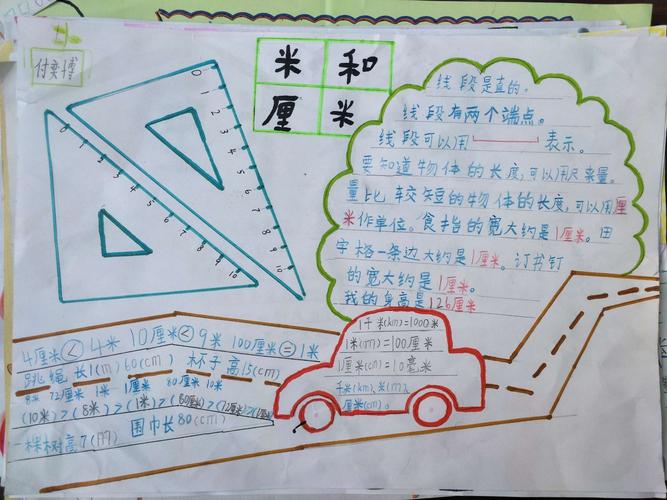 付奕博
米和
厘米
0 1 2 3 4 5 6 7 8 9 10
0 1 2 3 4 5 6 7 8 9 10
线段是直的。
线段有两个端点。
线段可以用 表示。
要知道物体的长度,可以用尺来量。
量比较短的物体的长度,可以用厘
米作单位。食指的宽大约是1厘米。田
字格一条边大约是1厘米。订书钉
的宽大约是1厘米。
我的身高是126厘米
1千米(km)=1000米
1米(m)=100厘米
1厘米(cm)=10毫米
千米(km)、米(m)、
厘米(cm)。
4厘米<4米 10厘米<9米 100厘米=1米
跳绳长1(m)60(cm) 杯子高15(cm)
8米 72厘米 1米 1厘米 80厘米 10米
(10米)>(8米)>(1米)>(80厘米)>(72厘米)>(1厘米)
围巾长80(cm)
一棵树高7(m)